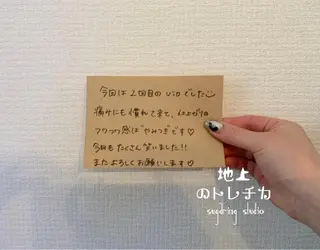 今回は2回目のVIOでした◡̈
痛みにも慣れて来て、仕上がりの
フワフワ感は"やみつき"です♡
今回もたくさん笑いました!!
またよろしくお願いします♡
地上
のトレチカ
sugaring studio